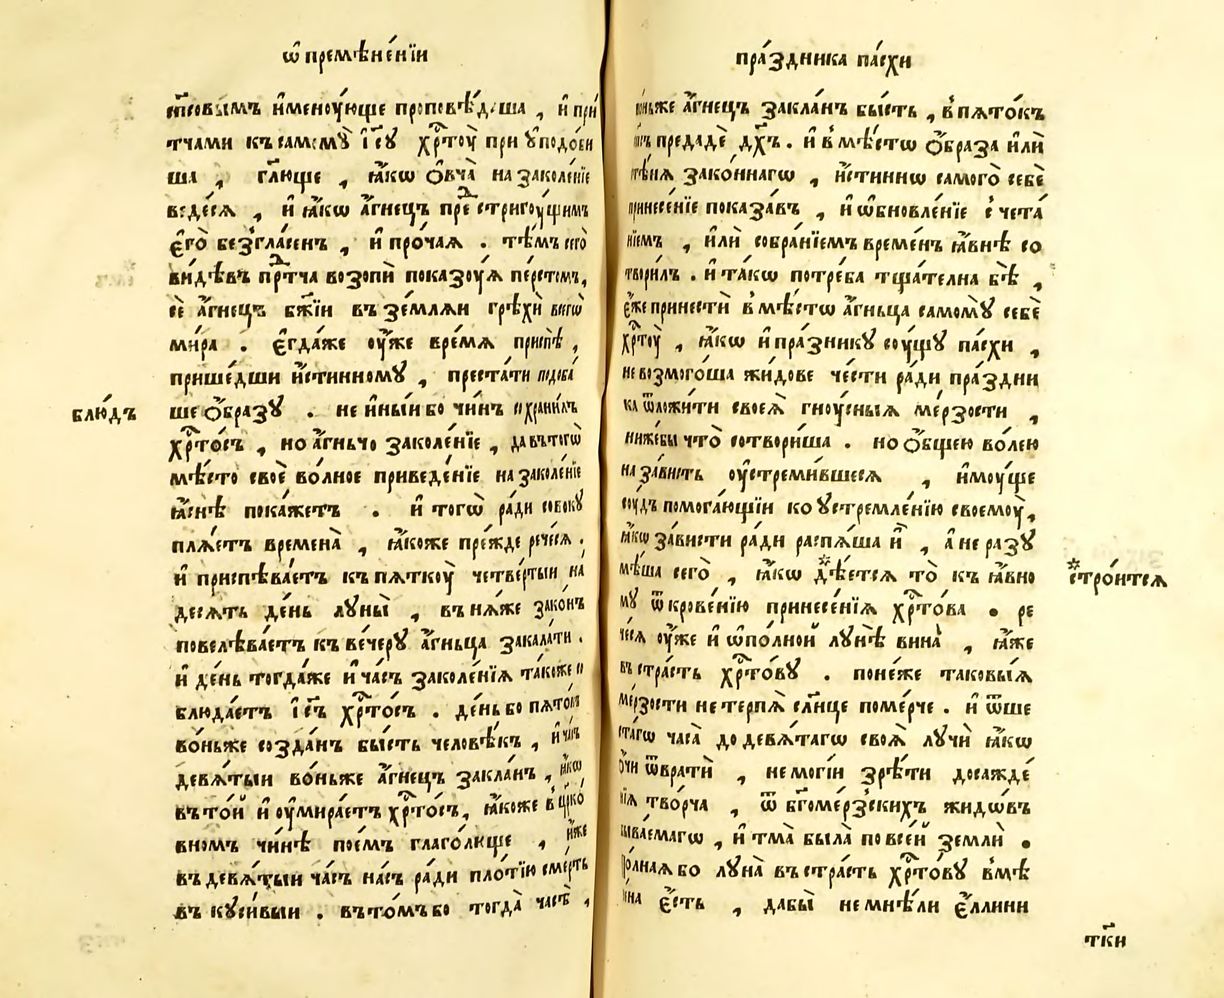 ѡ҆ премѣне́нїи
сп҃совы́мъ и҆меноу́юще проповѣ́даша , и҆ при́
тчами къ самомꙋ̀ і҆с҃ꙋ хр҃тоу̀ при ᲂу҆подо́би
ша , гл҃юще , ꙗ҆́кѡ ѻ҆вча̀ на заколе́нїе
веде́сѧ , и҆ ꙗ҆́кѡ а҆́гнецъ прⷣе стригоу́щимъ
є҆го̀ безгла́сенъ , и҆ про́чаѧ . тѣ́мъ сего̀
ви́дѣвъ прⷣтча возопѝ показоуѧ пе́рстомъ,
се́ а҆́гнецъ бж҃їи въ зе́млѧи грѣхѝ всегѡ̀
ми́ра . є҆гда́же ᲂу҆́же вре́мѧ приспѣ̀ ,
прише́дши и҆́стинномꙋ , преста́ти подоба́
блю́дъ
ше ѻ҆́бразꙋ . не и҆ны́и бо чи́нъ сохрани́лъ
хр҃то́съ , но а҆́гньчо заколе́нїе , да въ тогѡ̀
мѣ́сто своѐ во́лное приведе́нїе на заколе́нїе
ꙗ҆́снѣ пока́жетъ . и҆ тогѡ̀ ра́ди совокꙋ
плѧ́етъ времена̀ , ꙗ҆́коже пре́жде рече́сѧ .
и҆ приспѣва́етъ къ пѧткоу̀ четве́ртыи на
десѧть де́нь лꙋны̀ , въ нѧ́же зако́нъ
повелѣва́етъ къ ве́черꙋ а҆́гньца закала́ти .
и҆ де́нь тогда́же и҆ ча́съ заколе́нїѧ та́коже со
блюда́етъ і҆с҃ъ хр҃то́съ . де́нь бо пѧто́къ
во́ньже созда́нъ бы́сть человѣ́къ , и҆ ча́съ
девѧ́тыи во́ньже а҆́гнецъ закла́нъ , ꙗ҆́кѡ
въ то́й и҆ ᲂу҆мира́етъ хр҃то́съ, ꙗ҆́коже в цр҃ко́
вномъ чи́нѣ пое́мъ глаго́люще , и҆́же
въ девѧ́тыи ча́съ на́съ ра́ди пло́тїю сме́рть
въ кꙋси́выи . въ то́мъ бо тогда̀ часѣ̀ ,
пра́здника па́схи
во́ньже а҆́гнецъ закла́нъ бы́сть , в пѧто́къ
предадѐ дх҃ъ . и҆ в мѣ́стѡ ѻ҆́браза и҆лѝ
стѣ́нѧ зако́ннагѡ , и҆́стиннѡ самого̀ себѐ
принесе́нїе показа́въ , и҆ ѡ҆бновле́нїе с чета́
нїемъ , и҆лѝ собра́нїемъ време́нъ ꙗ҆́внѣ со
твори́лъ . и҆ та́кѡ потре́ба тща́телна бѣ̀ ,
є҆́же принестѝ в мѣ́стѡ а҆́гньца самомꙋ̀ себѐ
хр҃тоу̀ , ꙗ҆́кѡ и҆ пра́зникꙋ соу́щꙋ па́схи ,
не возмого́ша жи́дове че́сти ра́ди пра́здни
ка ѿложи́ти своеѧ̀ гноу́сныѧ ме́рзости ,
ниже́бы что̀ сотвори́ша . но ѻ҆́бщею во́лею
на за́висть ᲂу҆стреми́вшесѧ , и҆моу́ще
соу́дъ помога́ющїи ко ᲂу҆стремле́нїю своемоу̀,
ꙗ҆́кѡ за́висти ра́ди распѧ́ша и҆̀ , а҆ не разꙋ
мѣ́ша сего̀ , ꙗ҆́кѡ *дѣ́етсѧ то̀ къ ꙗ҆́вно
*стро́итсѧ
мꙋ ѿ кровенїю принесе́нїѧ хр҃то́ва . ре
че́сѧ ᲂу҆́же и҆ ѡ҆ по́лной лꙋнѣ̀ вина̀ , ꙗ҆́же
въ стра́сть хр҃то́вꙋ . поне́же таковы́ѧ
ме́рзости не терпѧ̀ сл҃нце поме́рче . и҆ ѿ ше
ста́гѡ часа̀ до девѧ́тагѡ своѧ̀ лꙋчѝ ꙗ҆́кѡ
ѻ҆́чи ѿвратѝ , не могі́и зрѣ́ти досажде́
нїѧ творца̀ , ѿ бг҃оме́рзскихъ жидо́въ
быва́емагѡ , и҆ тма̀ была̀ по все́й землѝ .
по́лнаѧ бо лꙋна̀ въ стра́сть хр҃то́вꙋ вмѣ
нена є҆́сть , дабы̀ не мнѣ́ли є҆́ллини
тк҃и